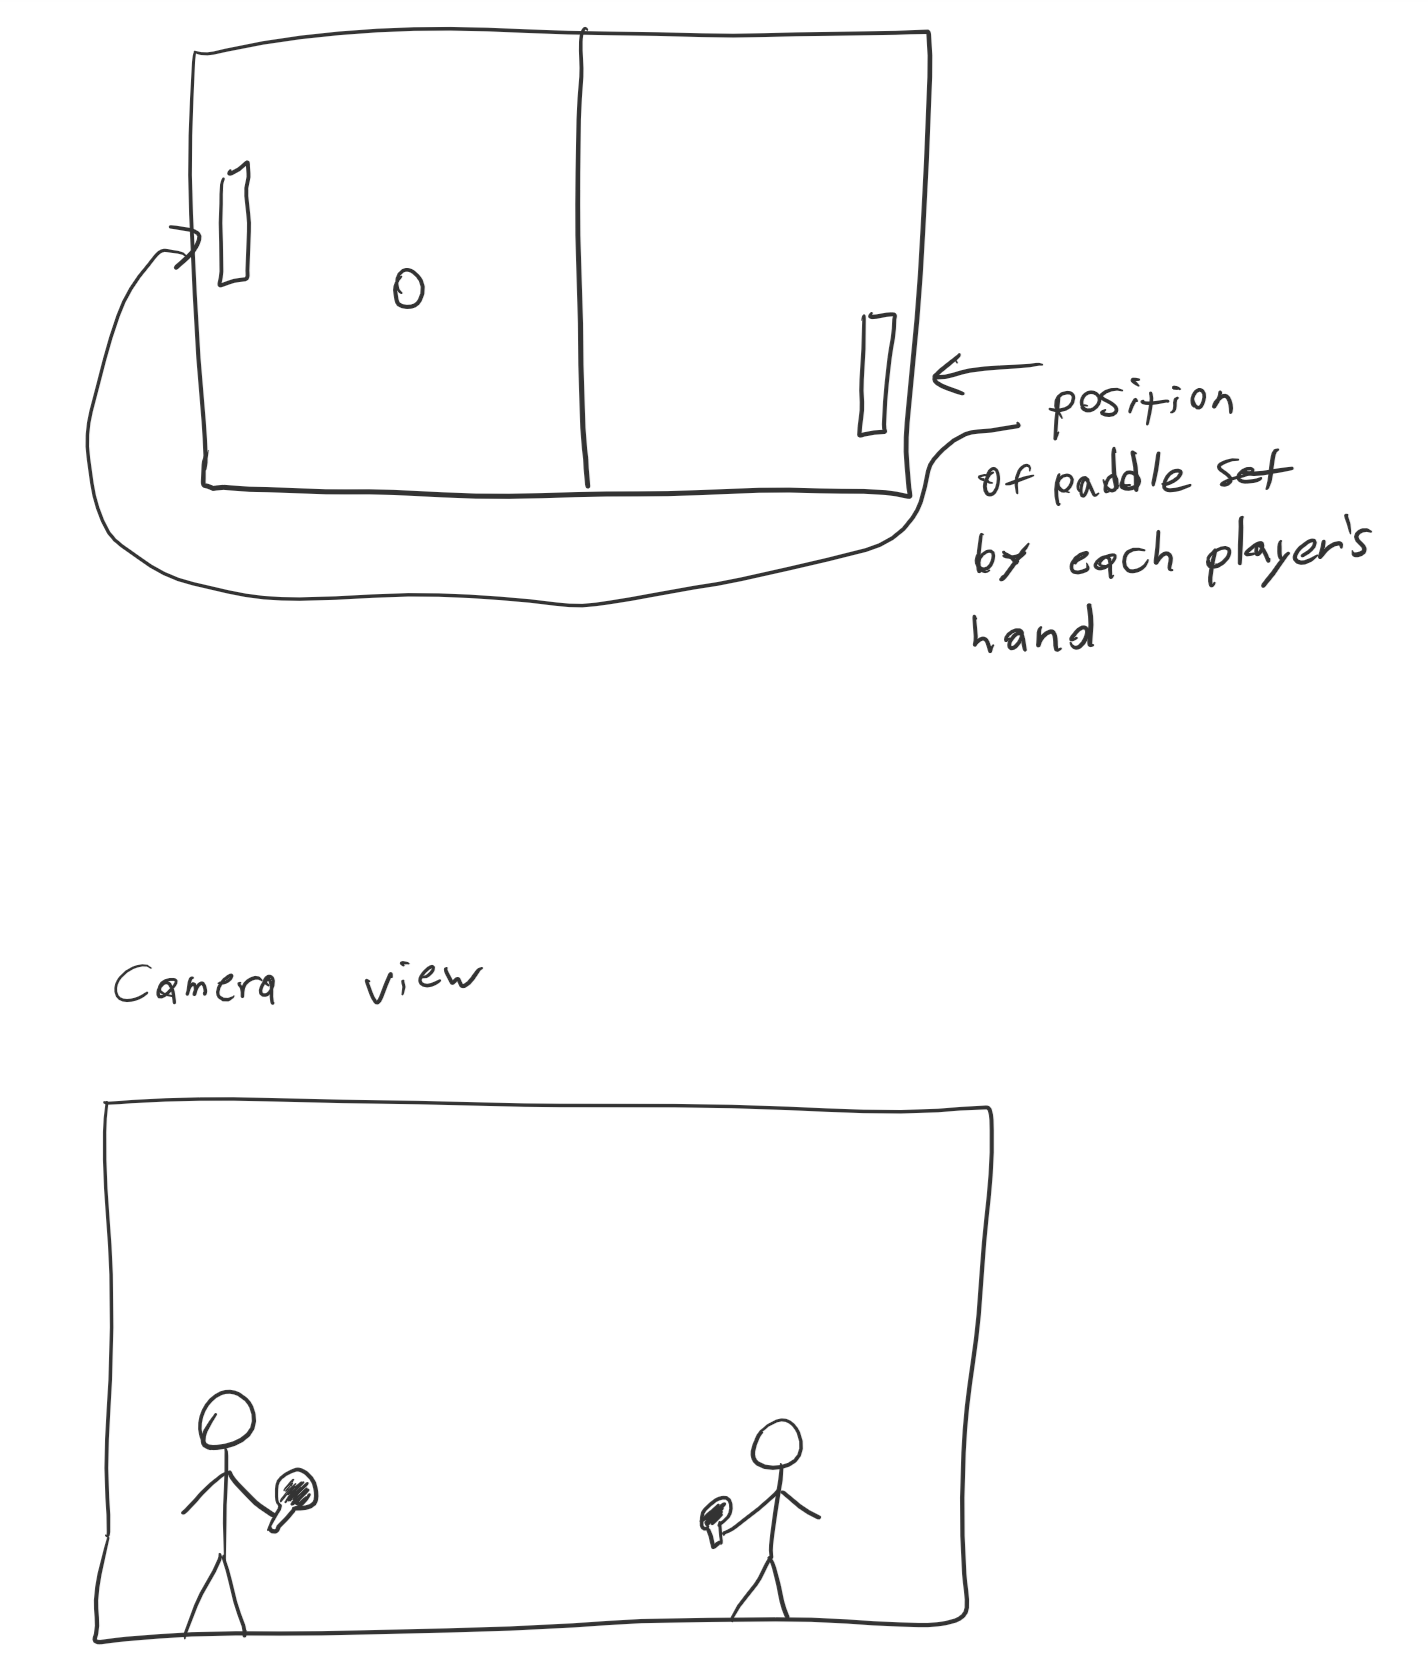 position
of paddle set
by each player's
hand
Camera view